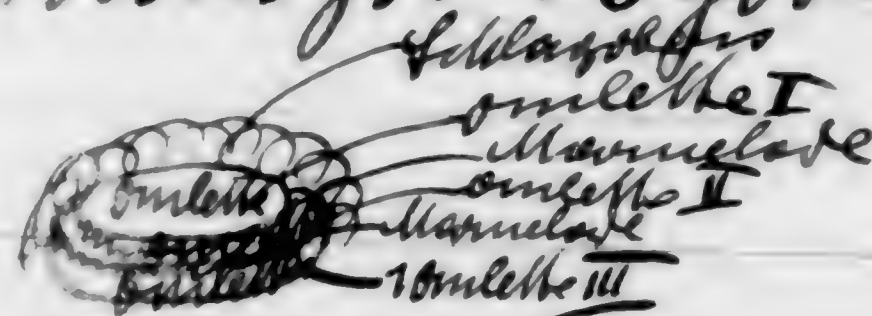 Schlagobers
Omlette I
Marmelade
Omlette II
Omlette
Marmelade
1 Omlette III
Omlette